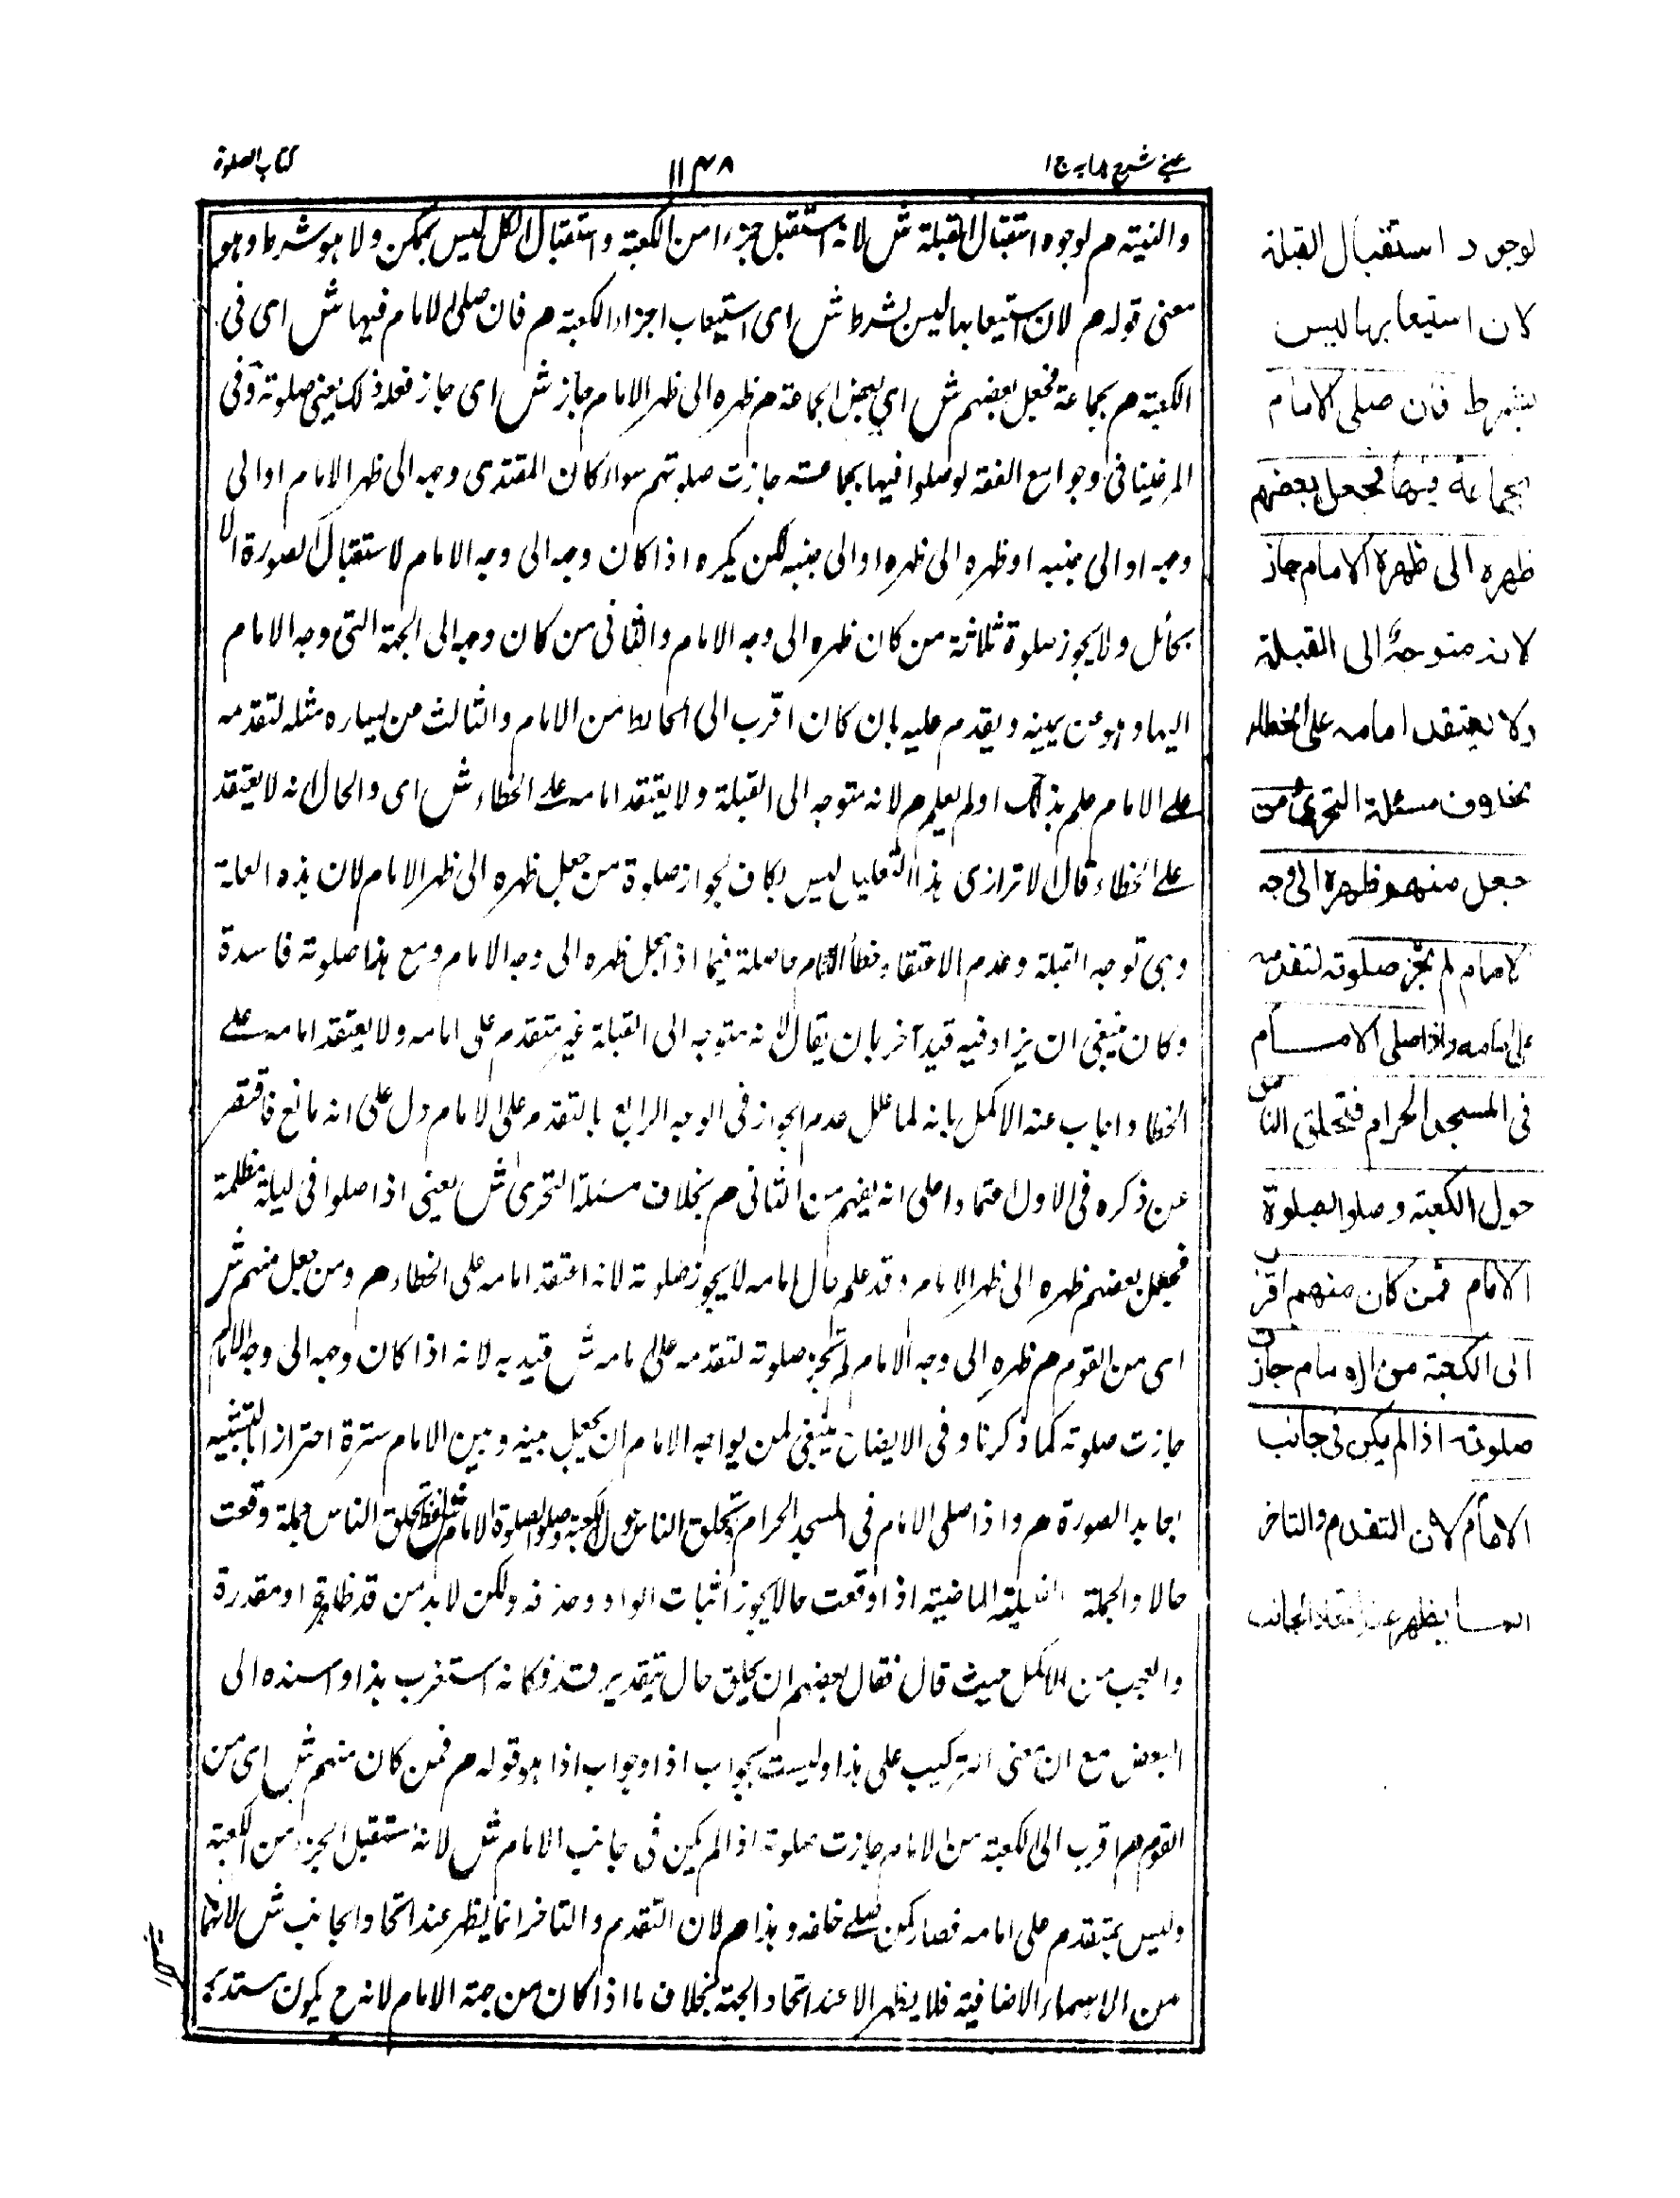 عيني شرح هدايه ج ١
١١٣٨
كتاب الصلوة
والنيته م لوجود استقبال القبلة ش لانه استقبل جزءا من الكعبة واستقبال الكل ليس بممكن ولا هو شرط وهو
معنى قوله م لان استيعابها ليس بشرط ش اى استيعاب اجزاء الكعبة م فان صلى الامام فيها ش اى فى
الكعبة م بجماعة فجعل بعضهم ش اى بعض الجماعة م ظهره الى ظهر الامام جاز ش اى جاز فعله ذلك يعنى صلوته وفى
المرغينانى وجوامع الفقه لو صلوا فيها بجماعة جازت صلوتهم سواء كان المقتدى وجهه الى ظهر الامام او الى
وجهه او الى جنبه او ظهره الى ظهره او الى جنبه لكن يكره اذا كان وجهه الى وجه الامام لاستقبال الصورة الا
بحائل ولا يجوز صلوة ثلاثة من كان ظهره الى وجه الامام والثانى من كان وجهه الى الجهة التى وجه الامام
اليها وهو عن يمينه ويقدم عليه بان كان اقرب الى الحائط من الامام والثالث من يساره مثله لتقدمه
على الامام علم بذلك او لم يعلم م لانه متوجه الى القبلة ولا يعتقد امامه على الخطاء ش اى والحال انه لا يعتقد
على الخطاء قال الاترازى هذا التعليل ليس بكاف لجواز صلوة من جعل ظهره الى ظهر الامام لان هذه العلة
وهى توجه القبلة وعدم الاعتقاد خطأ الامام حاصلة فيما اذا جعل ظهره الى وجه الامام ومع هذا صلوته فاسدة
وكان ينبغى ان يزاد فيه قيد آخر بان يقال لانه متوجه الى القبلة غير متقدم على امامه ولا يعتقد امامه على
الخطا واجاب عنه الاكمل بانه لما علل عدم الجواز فى الوجه الرابع بالتقدم على الامام دل على انه مانع فاقتصر
عن ذكره فى الاول اعتمادا على انه يفهم من الثانى م بخلاف مسئلة التحرى ش يعنى اذا صلوا فى ليلة مظلمة
فجعل بعضهم ظهره الى ظهر الامام وقد علم حال امامه لا يجوز صلوته لانه اعتقد امامه على الخطاء م ومن جعل منهم ش
اى من القوم م ظهره الى وجه الامام لم تجز صلوته لتقدمه على امامه ش قيد به لانه اذا كان وجهه الى وجه الامام
جازت صلوته كما ذكرنا وفى الايضاح ينبغى لمن يواجه الامام ان يجعل بينه وبين الامام سترة احترازا
الصورة م واذا صلى الامام فى المسجد الحرام فتحلق الناس حول الكعبة وصلوا الصلوة الامام ش لفظ تحلق الناس جملة وقعت
حالا والجملة الفعلية الماضية اذا وقعت حالا يجوز اثبات الواو وحذفه ولكن لابد من قد ظاهرة او مقدرة
والعجب من الاكمل حيث قال فقال بعضهم ان تحلق حال بتقدير قد فكانه استغرب هذا واسنده الى
البعض مع ان معنى التركيب على هذا وليست بجواب اذا وجواب اذا هو قوله م فمن كان منهم ش اى من
القوم م اقرب الى الكعبة من الامام جازت صلوته اذا لم يكن فى جانب الامام ش لانه استقبل الجزء من الكعبة
وليس بمتقدم على امامه فصار كمن صلى خلفه وهذا م لان التقدم والتاخر انما يظهر عند اتحاد الجانب ش لانهما
من الاسماء الاضافية فلا يظهر الا عند اتحاد الجهة بخلاف ما اذا كان من جهة الامام لانه ح يكون
لوجود استقبال القبلة
لان استيعابها ليس
بشرط فان صلى الامام
بجماعة فيها فجعل بعضهم
ظهره الى ظهر الامام جاز
لانه متوجه الى القبلة
ولا يعتقد امامه على الخطاء
بخلاف مسئلة التحرى ومن
جعل منهم ظهره الى وجه
الامام لم تجز صلوته لتقدمه
على امامه واذا صلى الامام
فى المسجد الحرام فتحلق الناس
حول الكعبة وصلوا الصلوة
الامام فمن كان منهم اقرب
الى الكعبة من الامام جازت
صلوته اذا لم يكن فى جانب
الامام لان التقدم والتاخر
انما يظهر عند اتحاد الجانب